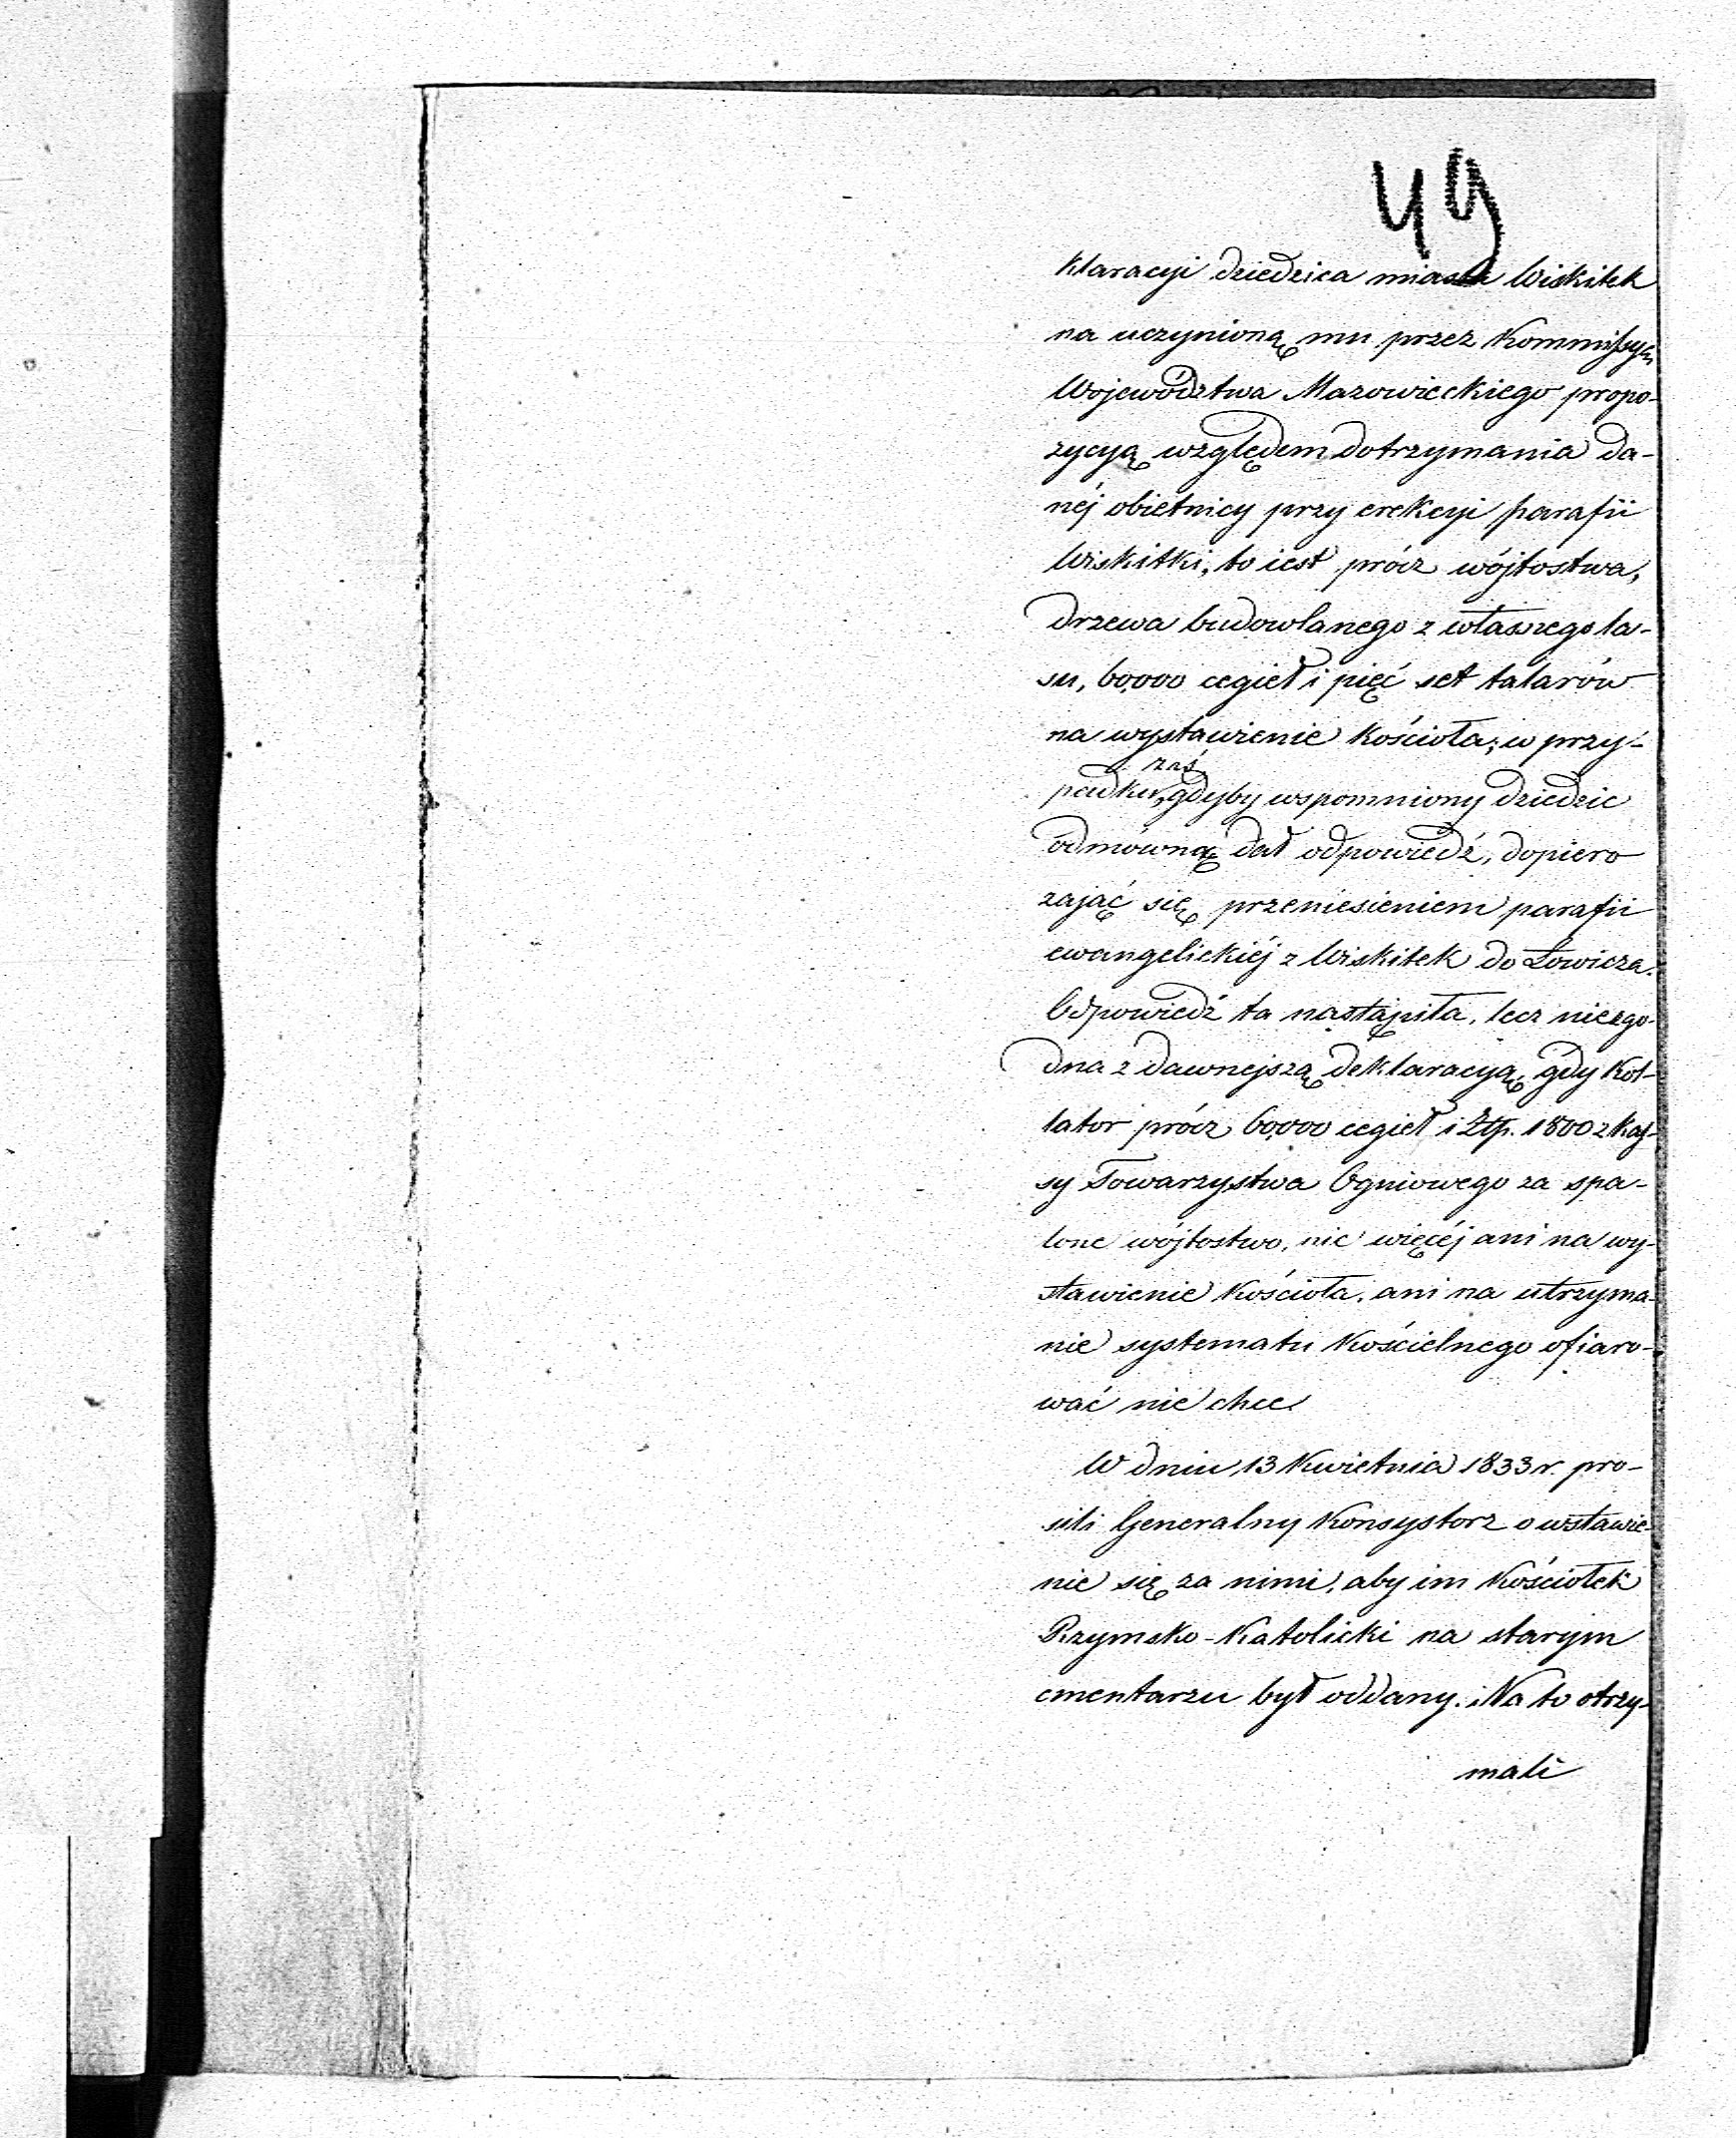 49
klaracyi dziedzica miasta Wiskitek
na uczynioną mu przez Kommissyę
Województwa Mazowieckiego propo-
zycyą względem dotrzymania da-
néj obietnicy przy erekcyi parafii
Wiskitki, to iest prócz wójtostwa,
drzewa budowlanego z własnego la-
su, 60,000 cegieł i pięć set talarów
na wystawienie kościoła; w przy-
zaś
padku, gdyby wspomniony dziedzic
odmówną dał odpowiedź, dopiero
zająć się przeniesieniem parafii
ewangelickiéj z Wiskitek do Łowicza.
Odpowiedź ta nastąpiła, lecz niezgo-
dna z dawnejszą deklaracyą, gdy Kol-
lator prócz 60,000 cegieł i Złp. 1800 z kas-
sy Towarzystwa Ogniowego za spa-
lone wójtostwo, nic więcéj ani na wy-
stawienie kościoła, ani na utrzyma-
nie systematu kościelnego ofiaro-
wać nie chce.
W dniu 13 Kwietnia 1833 r. pro-
sili Generalny Konsystorz o wstawie-
nie się za nimi, aby im kościołek
Rzymsko-Katolicki na starym
cmentarzu był oddany. Na to otrzy-
mali